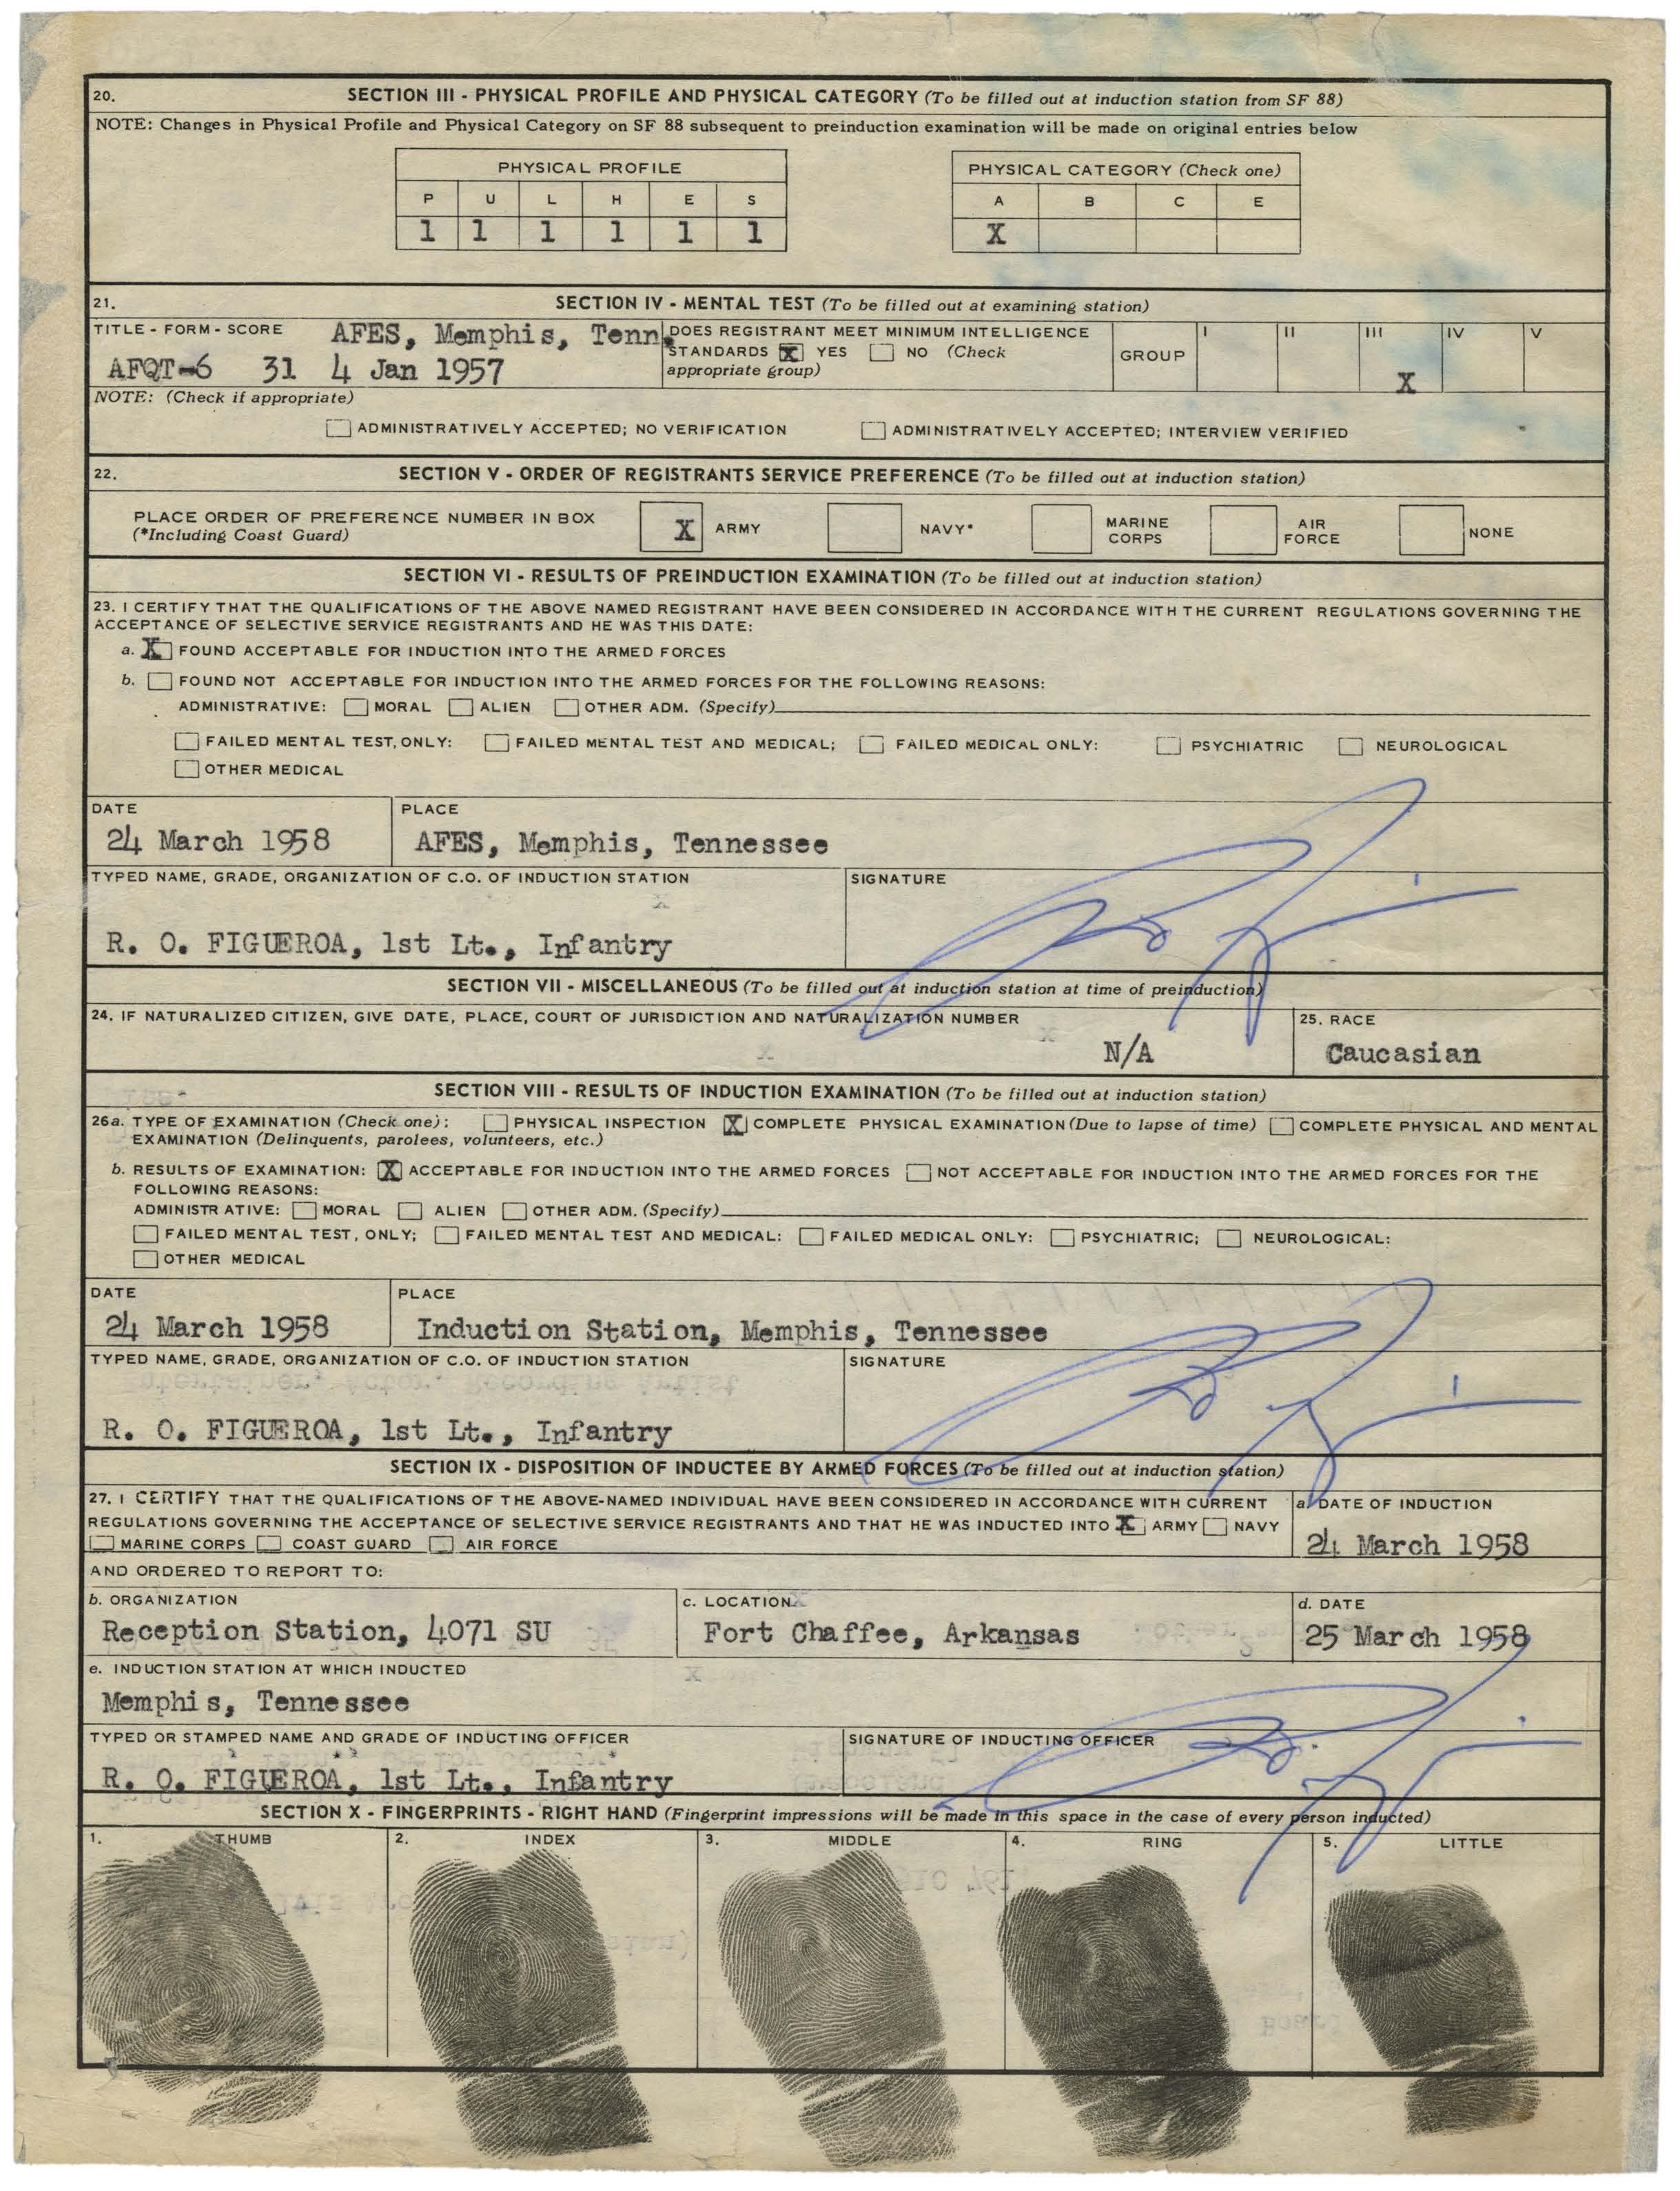 20. SECTION III - PHYSICAL PROFILE AND PHYSICAL CATEGORY (To be filled out at induction station from SF 88)
NOTE: Changes in Physical Profile and Physical Category on SF 88 subsequent to preinduction examination will be made on original entries below
PHYSICAL PROFILE PHYSICAL CATEGORY (Check one)
P U L H E S A B C E
1 1 1 1 1 1 X
21. SECTION IV - MENTAL TEST (To be filled out at examining station)
TITLE - FORM - SCORE AFES, Memphis, Tenn. DOES REGISTRANT MEET MINIMUM INTELLIGENCE I II III IV V
STANDARDS X YES NO (Check GROUP
AFQT-6 31 4 Jan 1957 appropriate group) X
NOTE: (Check if appropriate)
ADMINISTRATIVELY ACCEPTED; NO VERIFICATION ADMINISTRATIVELY ACCEPTED; INTERVIEW VERIFIED
22. SECTION V - ORDER OF REGISTRANTS SERVICE PREFERENCE (To be filled out at induction station)
PLACE ORDER OF PREFERENCE NUMBER IN BOX X ARMY NAVY* MARINE CORPS AIR FORCE NONE
(*Including Coast Guard)
SECTION VI - RESULTS OF PREINDUCTION EXAMINATION (To be filled out at induction station)
23. I CERTIFY THAT THE QUALIFICATIONS OF THE ABOVE NAMED REGISTRANT HAVE BEEN CONSIDERED IN ACCORDANCE WITH THE CURRENT REGULATIONS GOVERNING THE
ACCEPTANCE OF SELECTIVE SERVICE REGISTRANTS AND HE WAS THIS DATE:
a. X FOUND ACCEPTABLE FOR INDUCTION INTO THE ARMED FORCES
b. FOUND NOT ACCEPTABLE FOR INDUCTION INTO THE ARMED FORCES FOR THE FOLLOWING REASONS:
ADMINISTRATIVE: MORAL ALIEN OTHER ADM. (Specify)
FAILED MENTAL TEST, ONLY: FAILED MENTAL TEST AND MEDICAL; FAILED MEDICAL ONLY: PSYCHIATRIC NEUROLOGICAL
OTHER MEDICAL
DATE PLACE
24 March 1958 AFES, Memphis, Tennessee
TYPED NAME, GRADE, ORGANIZATION OF C.O. OF INDUCTION STATION SIGNATURE
R. O. FIGUEROA, 1st Lt., Infantry
SECTION VII - MISCELLANEOUS (To be filled out at induction station at time of preinduction)
24. IF NATURALIZED CITIZEN, GIVE DATE, PLACE, COURT OF JURISDICTION AND NATURALIZATION NUMBER 25. RACE
N/A Caucasian
SECTION VIII - RESULTS OF INDUCTION EXAMINATION (To be filled out at induction station)
26a. TYPE OF EXAMINATION (Check one): PHYSICAL INSPECTION X COMPLETE PHYSICAL EXAMINATION (Due to lapse of time) COMPLETE PHYSICAL AND MENTAL
EXAMINATION (Delinquents, parolees, volunteers, etc.)
b. RESULTS OF EXAMINATION: X ACCEPTABLE FOR INDUCTION INTO THE ARMED FORCES NOT ACCEPTABLE FOR INDUCTION INTO THE ARMED FORCES FOR THE
FOLLOWING REASONS:
ADMINISTRATIVE: MORAL ALIEN OTHER ADM. (Specify)
FAILED MENTAL TEST, ONLY; FAILED MENTAL TEST AND MEDICAL: FAILED MEDICAL ONLY: PSYCHIATRIC; NEUROLOGICAL:
OTHER MEDICAL
DATE PLACE
24 March 1958 Induction Station, Memphis, Tennessee
TYPED NAME, GRADE, ORGANIZATION OF C.O. OF INDUCTION STATION SIGNATURE
R. O. FIGUEROA, 1st Lt., Infantry
SECTION IX - DISPOSITION OF INDUCTEE BY ARMED FORCES (To be filled out at induction station)
27. I CERTIFY THAT THE QUALIFICATIONS OF THE ABOVE-NAMED INDIVIDUAL HAVE BEEN CONSIDERED IN ACCORDANCE WITH CURRENT a. DATE OF INDUCTION
REGULATIONS GOVERNING THE ACCEPTANCE OF SELECTIVE SERVICE REGISTRANTS AND THAT HE WAS INDUCTED INTO X ARMY NAVY
MARINE CORPS COAST GUARD AIR FORCE 24 March 1958
AND ORDERED TO REPORT TO:
b. ORGANIZATION c. LOCATION d. DATE
Reception Station, 4071 SU Fort Chaffee, Arkansas 25 March 1958
e. INDUCTION STATION AT WHICH INDUCTED
Memphis, Tennessee
TYPED OR STAMPED NAME AND GRADE OF INDUCTING OFFICER SIGNATURE OF INDUCTING OFFICER
R. O. FIGUEROA, 1st Lt., Infantry
SECTION X - FINGERPRINTS - RIGHT HAND (Fingerprint impressions will be made in this space in the case of every person inducted)
1. THUMB 2. INDEX 3. MIDDLE 4. RING 5. LITTLE